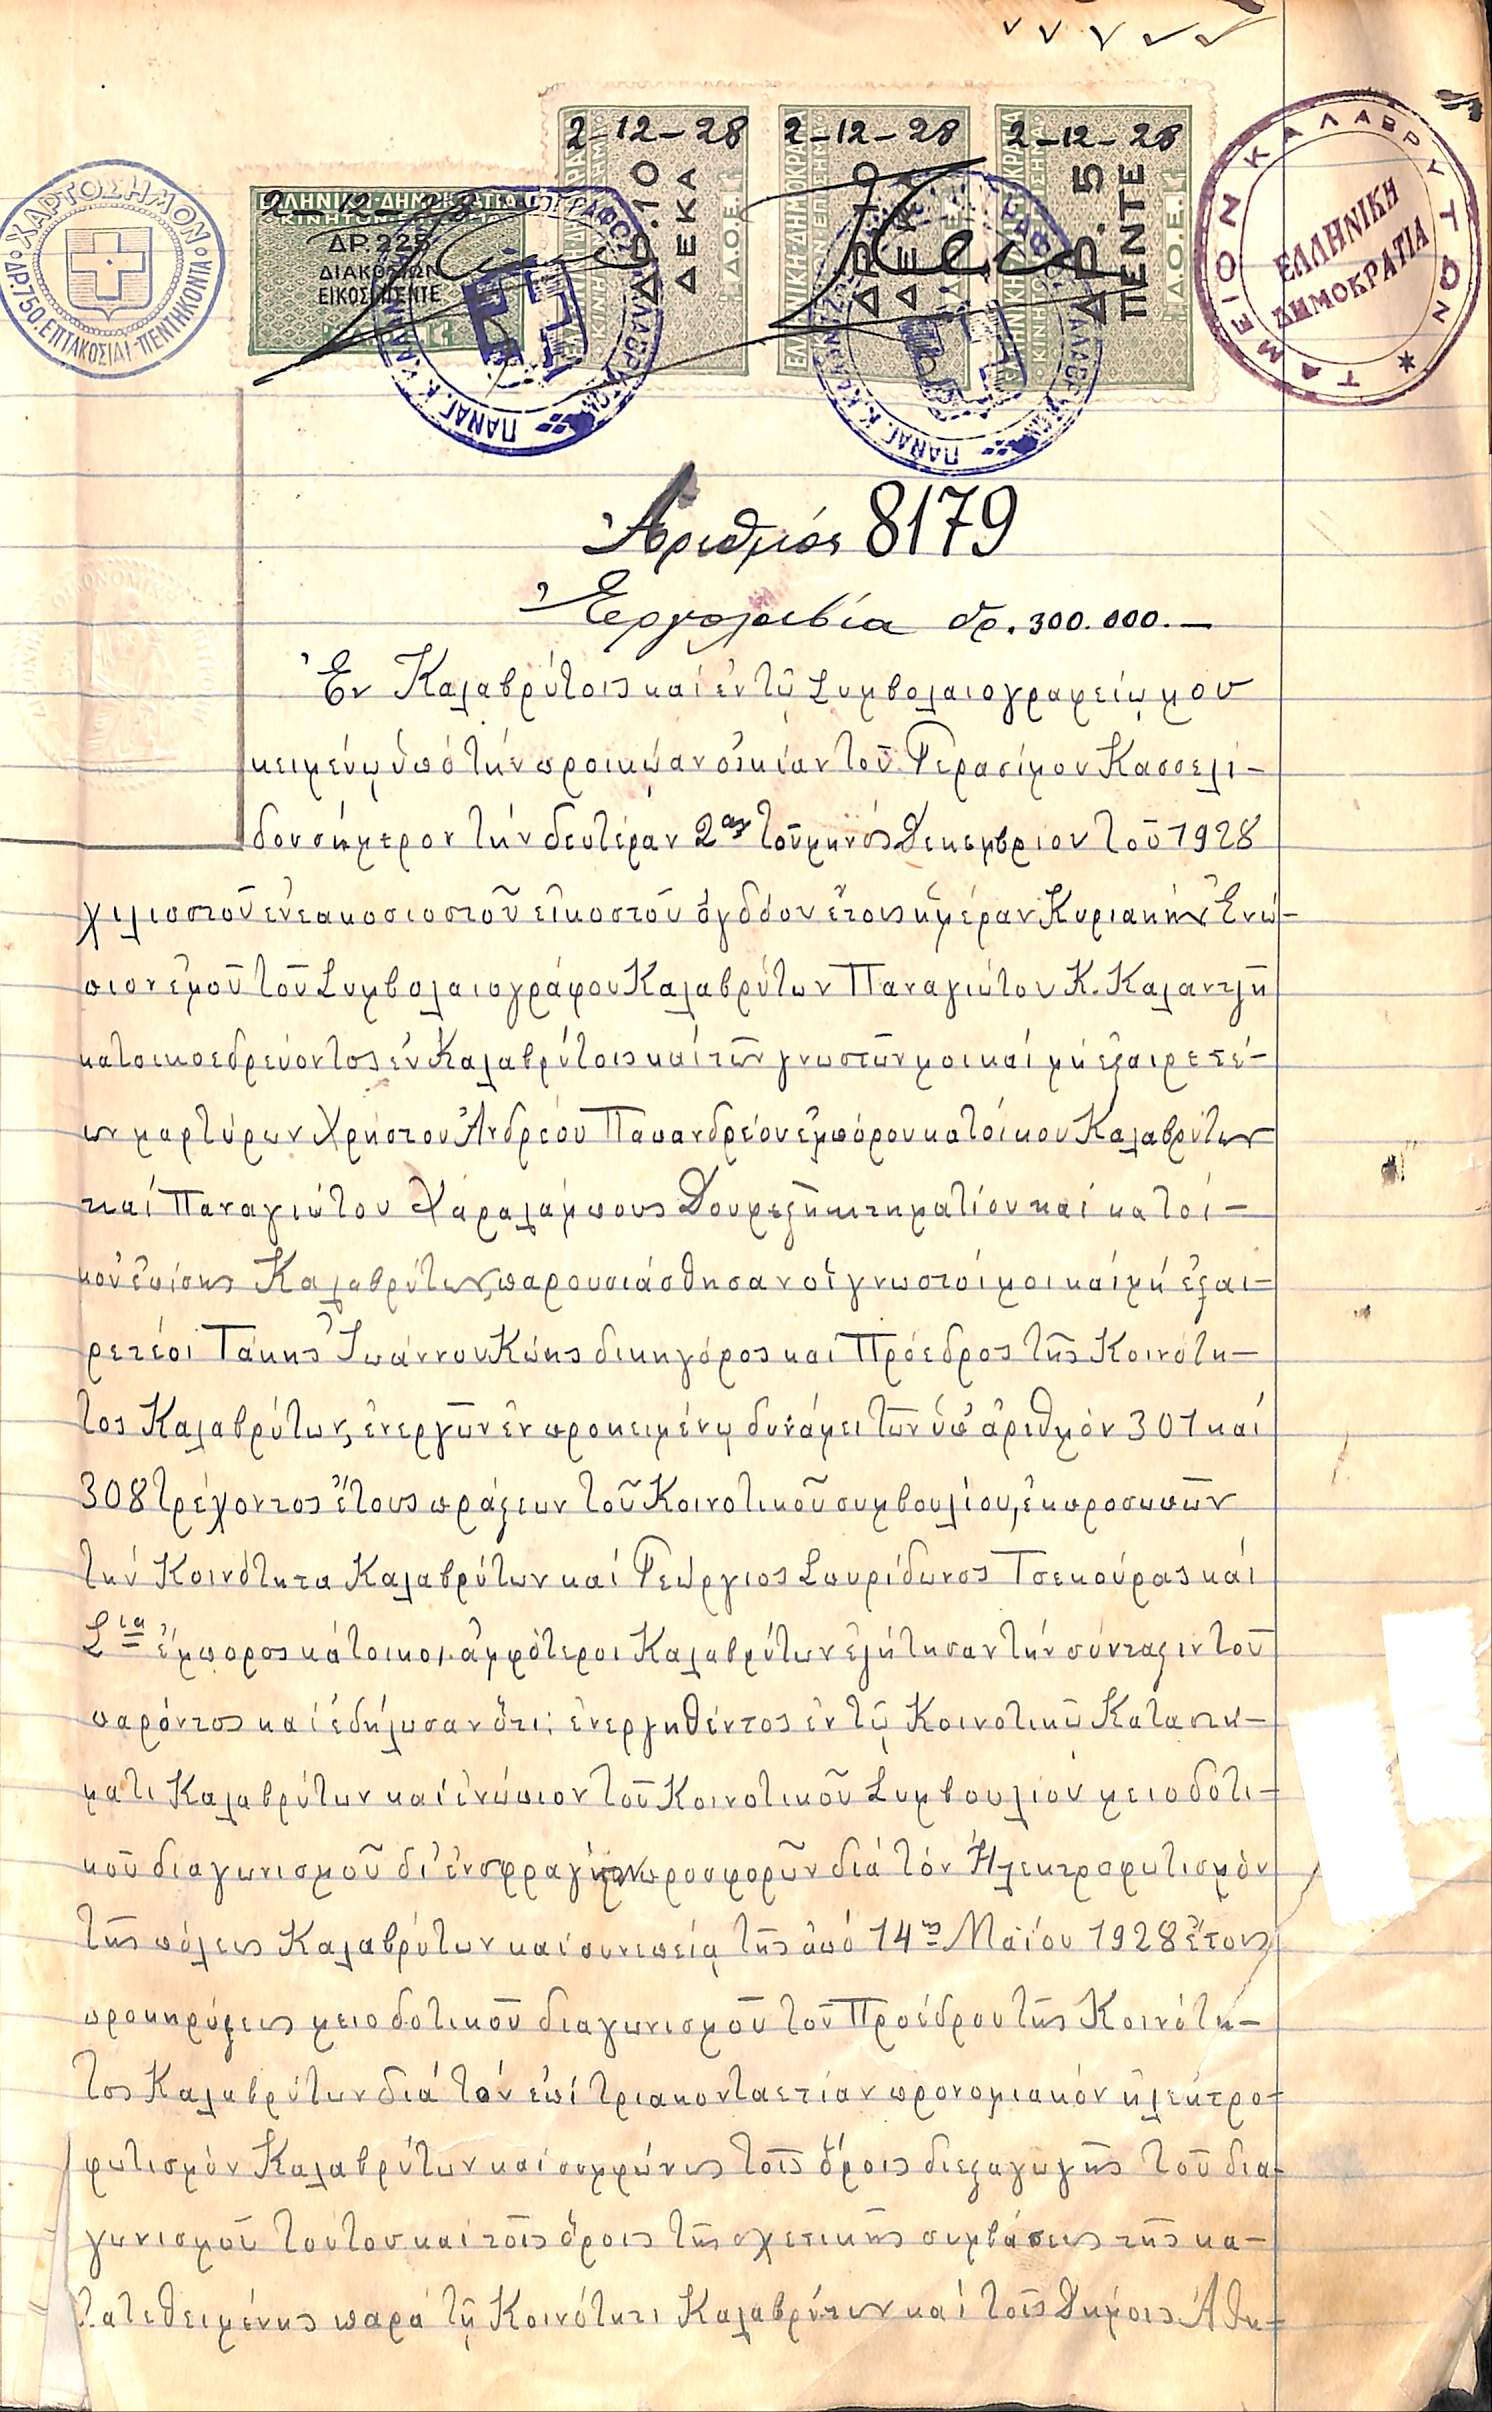 ΧΑΡΤΟΣΗΜΟΝ
ΔΡ.750.ΕΠΤΑΚΟΣΙΑΙ-ΠΕΝΤΗΚΟΝΤΑ
2-12-28
ΕΛΛΗΝΙΚΗ·ΔΗΜΟΚΡΑΤΙΑ
ΚΙΝΗΤΟΝ-ΕΠΙΣΗΜΑ
ΔΡ.225
ΔΙΑΚΟΣΙΩΝ
ΕΙΚΟΣΙΠΕΝΤΕ
2-12-28
ΔΡ.10
ΔΕΚΑ
2-12-28
ΔΡ.10
ΔΕΚΑ
2-12-28
ΔΡ.5
ΠΕΝΤΕ
ΤΑΜΕΙΟΝ ΚΑΛΑΒΡΥΤΩΝ
ΕΛΛΗΝΙΚΗ
ΔΗΜΟΚΡΑΤΙΑ
Ἀριθμός 8179
Ἐργολαβία δρ. 300.000.—
Ἐν Καλαβρύτοις καί ἐν τῷ Συμβολαιογραφείῳ μου
κειμένῳ ὑπό τήν προικώαν οἰκίαν τοῦ Γερασίμου Κασσελί-
δου σήμερον τήν δευτέραν 2αν τοῦ μηνός Δεκεμβρίου τοῦ 1928
χιλιοστοῦ ἐνεακοσιοστοῦ εἰκοστοῦ ὀγδόου ἔτους ἡμέραν Κυριακήν Ἐνώ-
πιον ἐμοῦ τοῦ Συμβολαιογράφου Καλαβρύτων Παναγιώτου Κ. Καλαντζῆ
κατοικοεδρεύοντος ἐν Καλαβρύτοις καί τῶν γνωστῶν μοι καί μή ἐξαιρετέ-
ων μαρτύρων Χρήστου Ἀνδρέου Παπανδρέου ἐμπόρου κατοίκου Καλαβρύτων
καί Παναγιώτου Χαραλάμπους κτηματίου καί κατοί-
κου ἐπίσης Καλαβρύτων, παρουσιάσθησαν οἱ γνωστοί μοι καί μή ἐξαι-
ρετέοι Τάκης Ἰωάννου Κώης δικηγόρος καί Πρόεδρος τῆς Κοινότη-
τος Καλαβρύτων, ἐνεργῶν ἐν προκειμένῳ δυνάμει τῶν ὑπ' ἀριθμόν 301 καί
308 τρέχοντος ἔτους πράξεων τοῦ Κοινοτικοῦ συμβουλίου, ἐκπροσωπῶν
τήν Κοινότητα Καλαβρύτων καί Γεώργιος Σπυρίδωνος Τσεκούρας καί
Σια ἔμπορος κάτοικοι ἀμφότεροι Καλαβρύτων ἐζήτησαν τήν σύνταξιν τοῦ
παρόντος καί ἐδήλωσαν ὅτι: ἐνεργηθέντος ἐν τῷ Κοινοτικῷ Καταστή-
ματι Καλαβρύτων καί ἐνώπιον τοῦ Κοινοτικοῦ Συμβουλίου μειοδοτι-
κοῦ διαγωνισμοῦ δι' ἐνσφραγίστων προσφορῶν διά τόν Ἠλεκτροφωτισμόν
τῆς πόλεως Καλαβρύτων καί συνεπείᾳ τῆς ἀπό 14ης Μαΐου 1928 ἔτους
προκηρύξεως μειοδοτικοῦ διαγωνισμοῦ τοῦ Προέδρου τῆς Κοινότη-
τος Καλαβρύτων διά τόν ἐπί τριακονταετίαν προνομιακόν ἠλεκτρο-
φωτισμόν Καλαβρύτων καί συμφώνως τοῖς ὅροις διεξαγωγῆς τοῦ δια-
γωνισμοῦ τούτου καί τοῖς ὅροις τῆς σχετικῆς συμβάσεως τῆς κα-
τατεθειμένης παρά τῇ Κοινότητι Καλαβρύτων καί τοῖς Δήμοις Ἀθη-